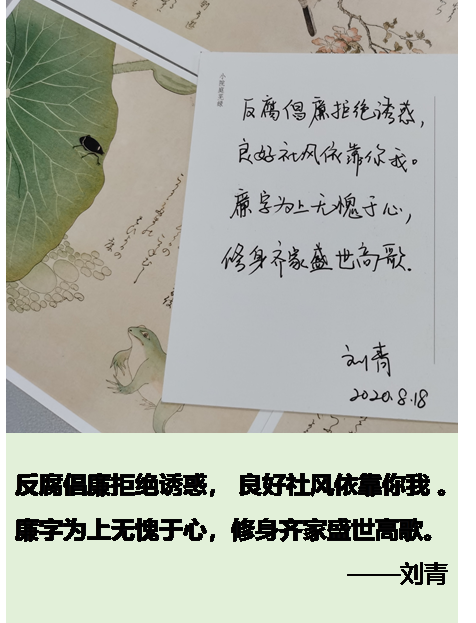 反腐倡廉拒绝诱惑，
良好社风依靠你我。
廉字为上无愧于心，
修身齐家盛世高歌.
刘青
2020.8.18
反腐倡廉拒绝诱惑， 良好社风依靠你我 。
廉字为上无愧于心，修身齐家盛世高歌。
——刘青